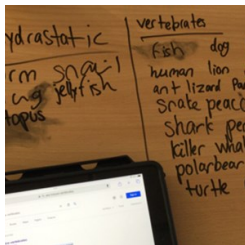 ydrastatic
rm snail
ug jellyfish
topus
vertebrates
fish dog
human lion
ant lizard
snake peac
shark pe
killer wha
polarbear
turtle